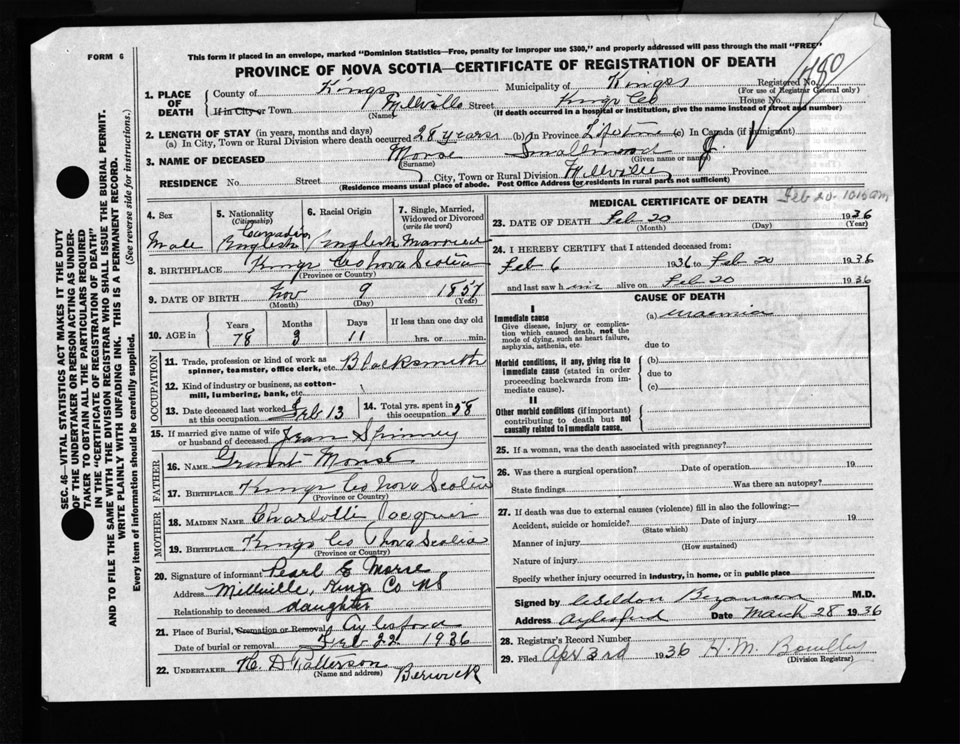 FORM 6
This form if placed in an envelope, marked "Dominion Statistics—Free, penalty for improper use $300," and properly addressed will pass through the mail "FREE"
PROVINCE OF NOVA SCOTIA—CERTIFICATE OF REGISTRATION OF DEATH
SEC. 46—VITAL STATISTICS ACT MAKES IT THE DUTY
OF THE UNDERTAKER OR PERSON ACTING AS UNDER-
TAKER TO OBTAIN ALL THE PARTICULARS REQUIRED
IN THE "CERTIFICATE OF REGISTRATION OF DEATH"
AND TO FILE THE SAME WITH THE DIVISION REGISTRAR WHO SHALL ISSUE THE BURIAL PERMIT.
WRITE PLAINLY WITH UNFADING INK. THIS IS A PERMANENT RECORD.
Every item of information should be carefully supplied. (See reverse side for instructions.)
1. PLACE OF DEATH County of Kings Municipality of Kings Registered No. 780
(For use of Registrar General only)
If in City or Town Millville Street Kings Co House No.
(Name) (If death occurred in a hospital or institution, give the name instead of street and number)
2. LENGTH OF STAY (in years, months and days)
(a) In City, Town or Rural Division where death occurred 28 years (b) In Province Lifetime (c) In Canada (if immigrant)
3. NAME OF DECEASED Morse Smallwood J.
(Surname) (Given name or names)
RESIDENCE No. Street City, Town or Rural Division Millville Province
(Residence means usual place of abode. Post Office Address for residents in rural parts not sufficient)
4. Sex Male
5. Nationality (Citizenship) Canadian English
6. Racial Origin English
7. Single, Married, Widowed or Divorced (write the word) Married
8. BIRTHPLACE Kings Co Nova Scotia
(Province or Country)
9. DATE OF BIRTH Nov 9 1857
(Month) (Day) (Year)
10. AGE in Years 78 Months 3 Days 11 If less than one day old hrs. or min.
OCCUPATION
11. Trade, profession or kind of work as spinner, teamster, office clerk, etc. Blacksmith
12. Kind of industry or business, as cotton-mill, lumbering, bank, etc.
13. Date deceased last worked at this occupation Feb 13
14. Total yrs. spent in this occupation 58
15. If married give name of wife or husband of deceased Jean Spinney
FATHER
16. NAME Grant Morse
17. BIRTHPLACE Kings Co Nova Scotia
(Province or Country)
MOTHER
18. MAIDEN NAME Charlotte
19. BIRTHPLACE Kings Co Nova Scotia
(Province or Country)
20. Signature of informant Pearl E Morse
Address Millville, Kings Co NS
Relationship to deceased daughter
21. Place of Burial, Cremation or Removal Aylesford
Date of burial or removal Feb 22 1936
22. UNDERTAKER H. D Patterson Berwick
(Name and address)
MEDICAL CERTIFICATE OF DEATH Feb 20- 10.15 am
23. DATE OF DEATH Feb 20 1936
(Month) (Day) (Year)
24. I HEREBY CERTIFY that I attended deceased from:
Feb 6 1936 to Feb 20 1936
and last saw him alive on Feb 20 1936
CAUSE OF DEATH
I
Immediate cause (a)
Give disease, injury or complication which caused death, not the mode of dying, such as heart failure, asphyxia, asthenia, etc.
due to
Morbid conditions, if any, giving rise to immediate cause (stated in order proceeding backwards from immediate cause).
(b)
due to
(c)
II
Other morbid conditions (if important) contributing to death but not causally related to immediate cause.
25. If a woman, was the death associated with pregnancy?
26. Was there a surgical operation? Date of operation 19
State findings Was there an autopsy?
27. If death was due to external causes (violence) fill in also the following:—
Accident, suicide or homicide? Date of injury 19
(State which)
Manner of injury
(How sustained)
Nature of injury
Specify whether injury occurred in industry, in home, or in public place
Signed by Bezanson M.D.
Address Aylesford Date March 28 1936
28. Registrar's Record Number
29. Filed Apr 3rd 1936 H. M.
(Division Registrar)